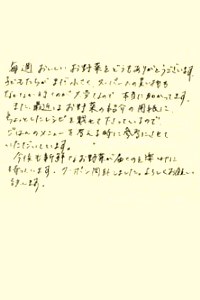 毎週 おいしい お野菜をどうもありがとうございます。
子どもたちが まだ小さく、スーパーへの買い物も
なかなか 大変なので 本当に助かってます。
また、最近は お野菜の紹介の用紙に
ちょっとしたレシピを載せて下さっているので
ごはんのメニューを考える時に参考にさせて
いただいています。
今後も新鮮なお野菜が届くのを楽しみに
待っています。クーポン同封しました。よろしくお願い
致します。